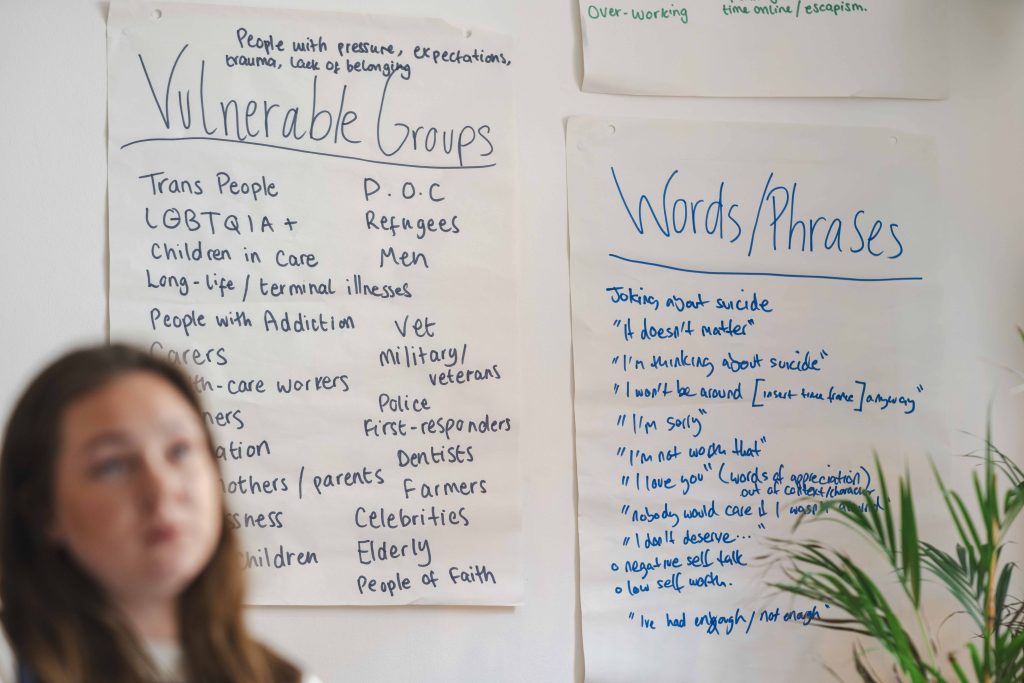 People with pressure, expectations,
trauma, lack of belonging
Vulnerable Groups
Trans People
LGBTQIA+
Children in care
Long-life / terminal illnesses
People with Addiction
Carers
th-care workers
ners
ation
mothers / parents
ssness
children
P.O.C
Refugees
Men
Vet
military/
veterans
Police
First-responders
Dentists
Farmers
Celebrities
Elderly
People of Faith
Over-working
time online / escapism.
Words/Phrases
Joking about suicide
"It doesn't matter"
"I'm thinking about suicide"
"I won't be around [insert time frame] anyway"
"I'm sorry"
"I'm not worth that"
"I love you" (words of appreciation)
out of context/character
"nobody would care if I wasn't around"
"I don't deserve..."
o negative self talk
o low self worth.
"Ive had enough / not enough"